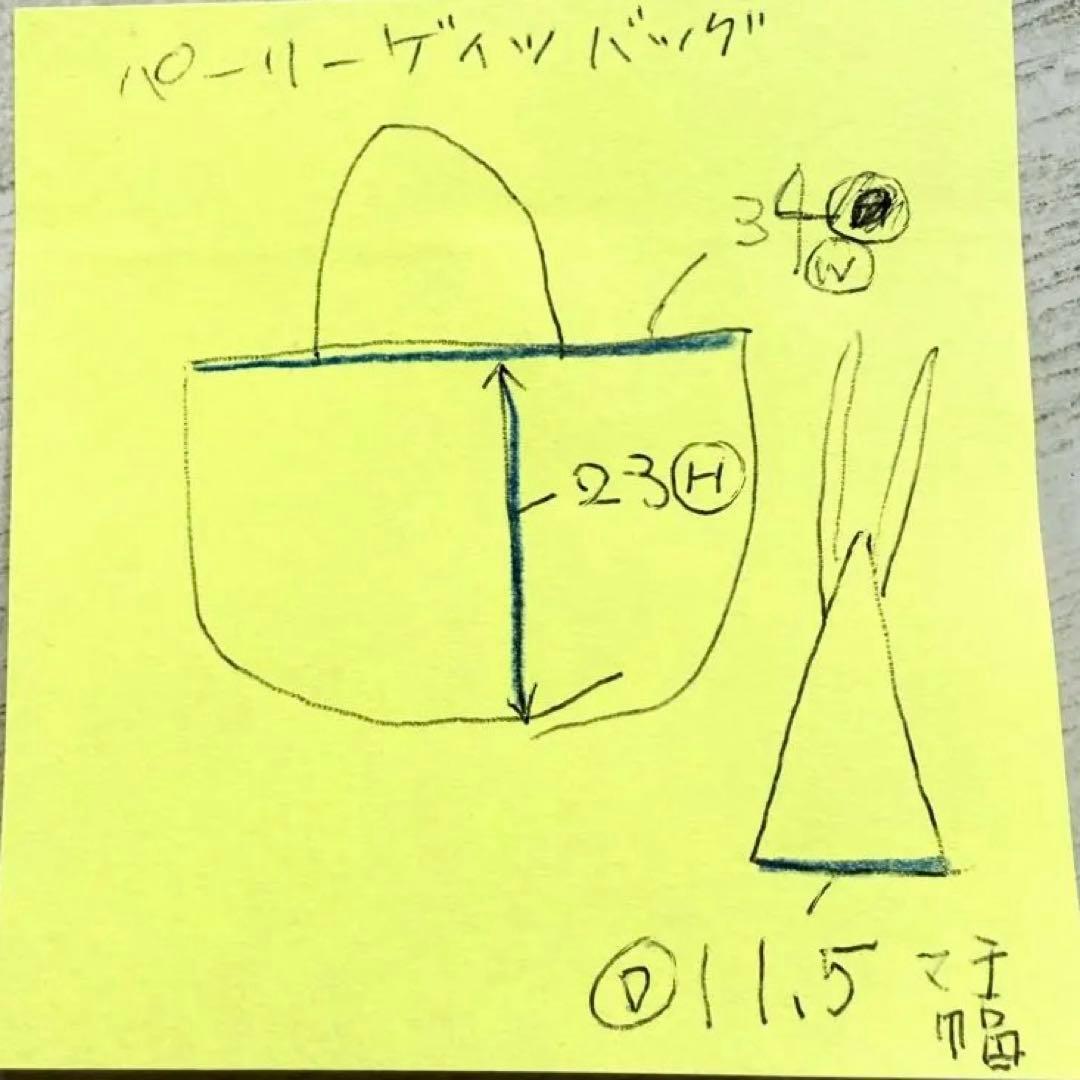 パーリーゲイツバッグ
34
W
23 H
D 11.5 マチ
幅